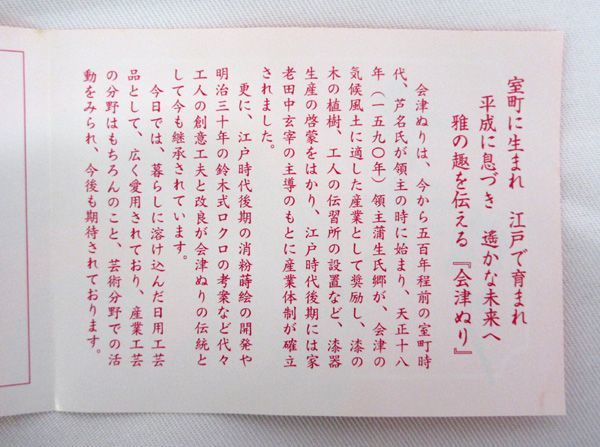 室町に生まれ　江戸で育まれ
平成に息づき　遙かな未来へ
雅の趣を伝える『会津ぬり』
会津ぬりは、今から五百年程前の室町時
代、芦名氏が領主の時に始まり、天正十八
年（一五九〇年）領主蒲生氏郷が、会津の
気候風土に適した産業として奨励し、漆の
木の植樹、工人の伝習所の設置など、漆器
生産の啓蒙をはかり、江戸時代後期には家
老田中玄宰の主導のもとに産業体制が確立
されました。
更に、江戸時代後期の消粉蒔絵の開発や
明治三十年の鈴木式ロクロの考案など代々
工人の創意工夫と改良が会津ぬりの伝統と
して今も継承されています。
今日では、暮らしに溶け込んだ日用工芸
品として、広く愛用されており、産業工芸
の分野はもちろんのこと、芸術分野での活
動をみられ、今後も期待されております。